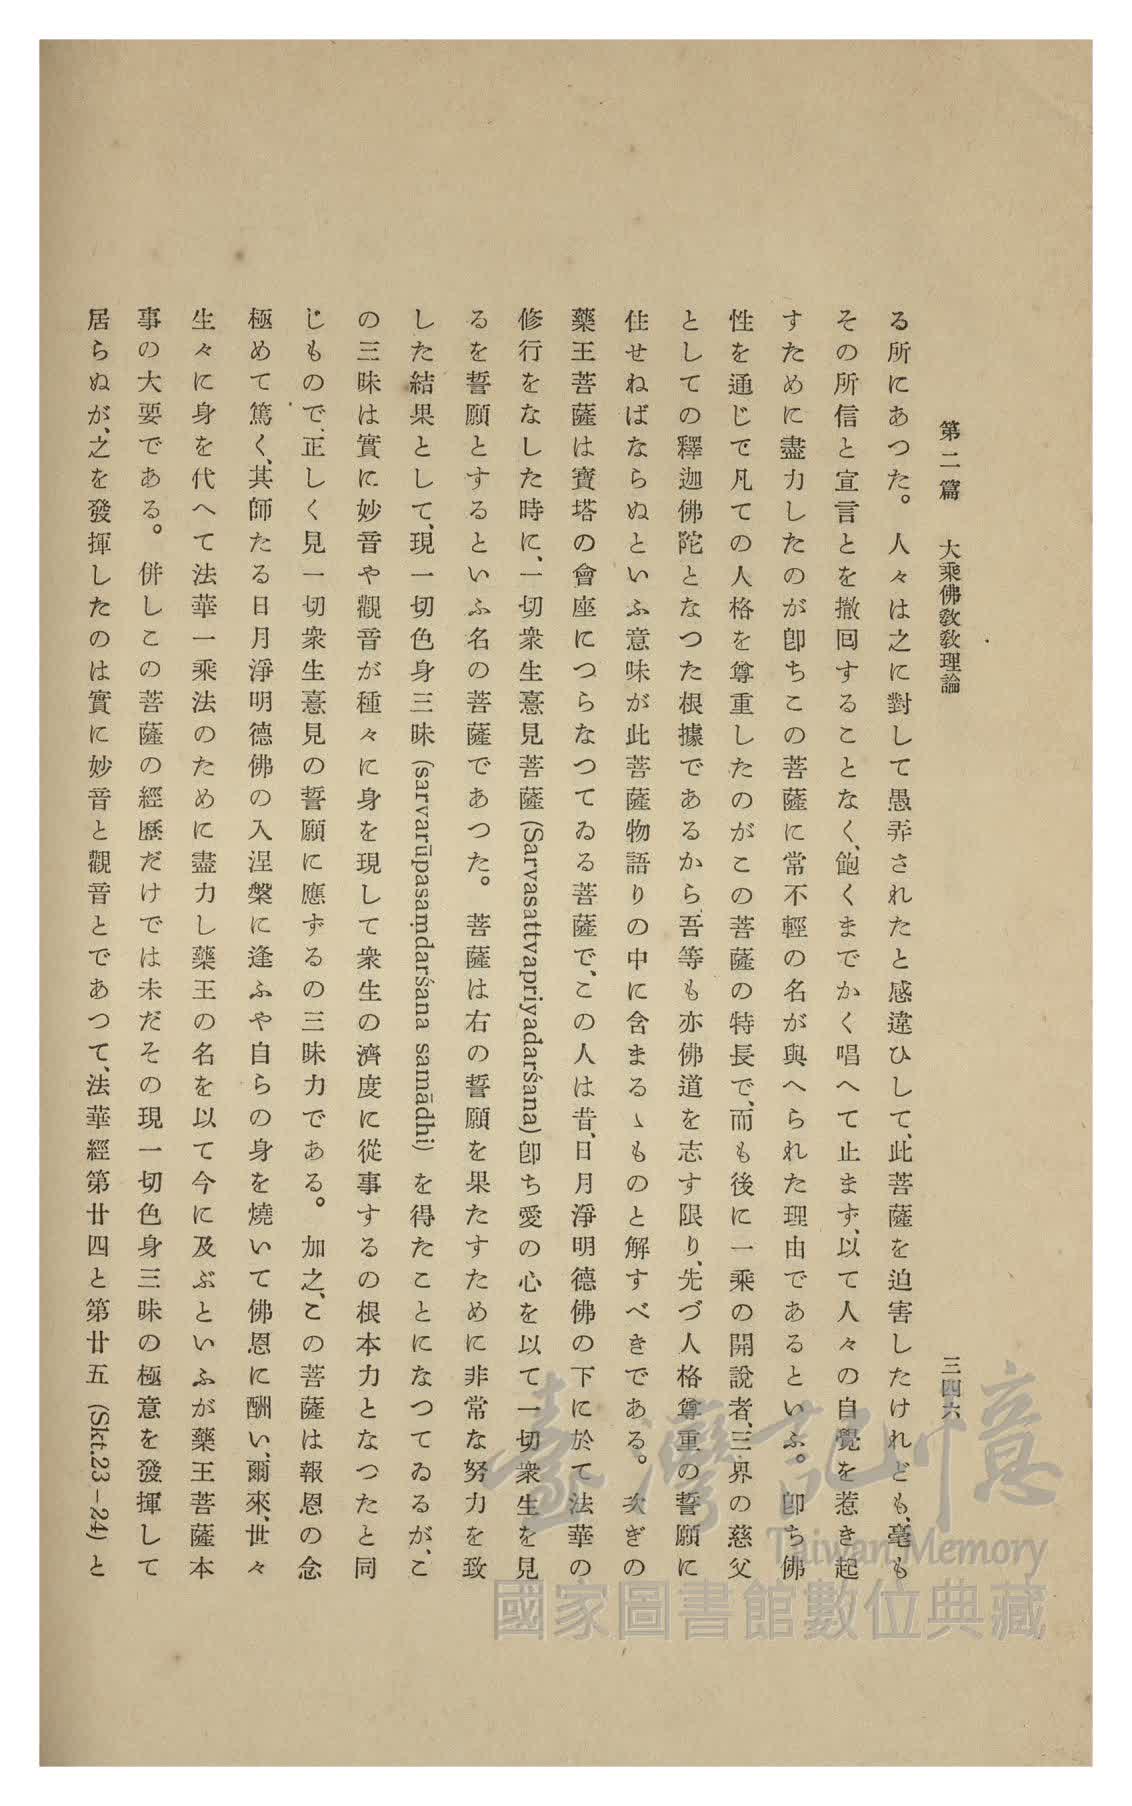 第二篇　大乘佛敎敎理論
三四六
る所にあつた。人々は之に對して愚弄されたと感違ひして、此菩薩を迫害したけれども、毫も
その所信と宣言とを撤囘することなく、飽くまでかく唱へて止まず、以て人々の自覺を惹き起
すために盡力したのが卽ちこの菩薩に常不輕の名が與へられた理由であるといふ。卽ち佛
性を通じて凡ての人格を尊重したのがこの菩薩の特長で、而も後に一乘の開說者、三界の慈父
としての釋迦佛陀となつた根據であるから、吾等も亦佛道を志す限り、先づ人格尊重の誓願に
住せねばならぬといふ意味が此菩薩物語りの中に含まるゝものと解すべきである。次ぎの
藥王菩薩は寶塔の會座につらなつてゐる菩薩で、この人は昔、日月淨明德佛の下に於て法華の
修行をなした時に、一切衆生憙見菩薩(Sarvasattvapriyadarśana)卽ち愛の心を以て一切衆生を見
るを誓願とするといふ名の菩薩であつた。菩薩は右の誓願を果たすために非常な努力を致
した結果として、現一切色身三昧(sarvarūpasaṃdarśana samādhi)を得たことになつてゐるが、こ
の三昧は實に妙音や觀音が種々に身を現して衆生の濟度に從事するの根本力となつたと同
じもので、正しく見一切衆生憙見の誓願に應ずるの三昧力である。加之、この菩薩は報恩の念
極めて篤く、其師たる日月淨明德佛の入涅槃に逢ふや自らの身を燒いて佛恩に酬い、爾來、世々
生々に身を代へて法華一乘法のために盡力し藥王の名を以て今に及ぶといふが藥王菩薩本
事の大要である。併しこの菩薩の經歷だけでは未だその現一切色身三昧の極意を發揮して
居らぬが、之を發揮したのは實に妙音と觀音とであつて、法華經第廿四と第廿五(Skt.23–24)と
臺灣記憶
Taiwan Memory
國家圖書館數位典藏